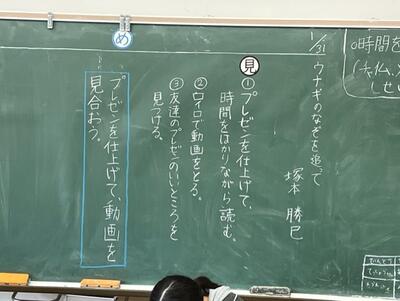 0時間を
1/31 ウナギのなぞを追って
塚本 勝巳
見
①プレゼンを仕上げて、
時間をはかりながら読む。
②ロイロで動画をとる。
③友達のプレゼンのいいところを
見つける。
め
プレゼンを仕上げて、動画を
見合おう。